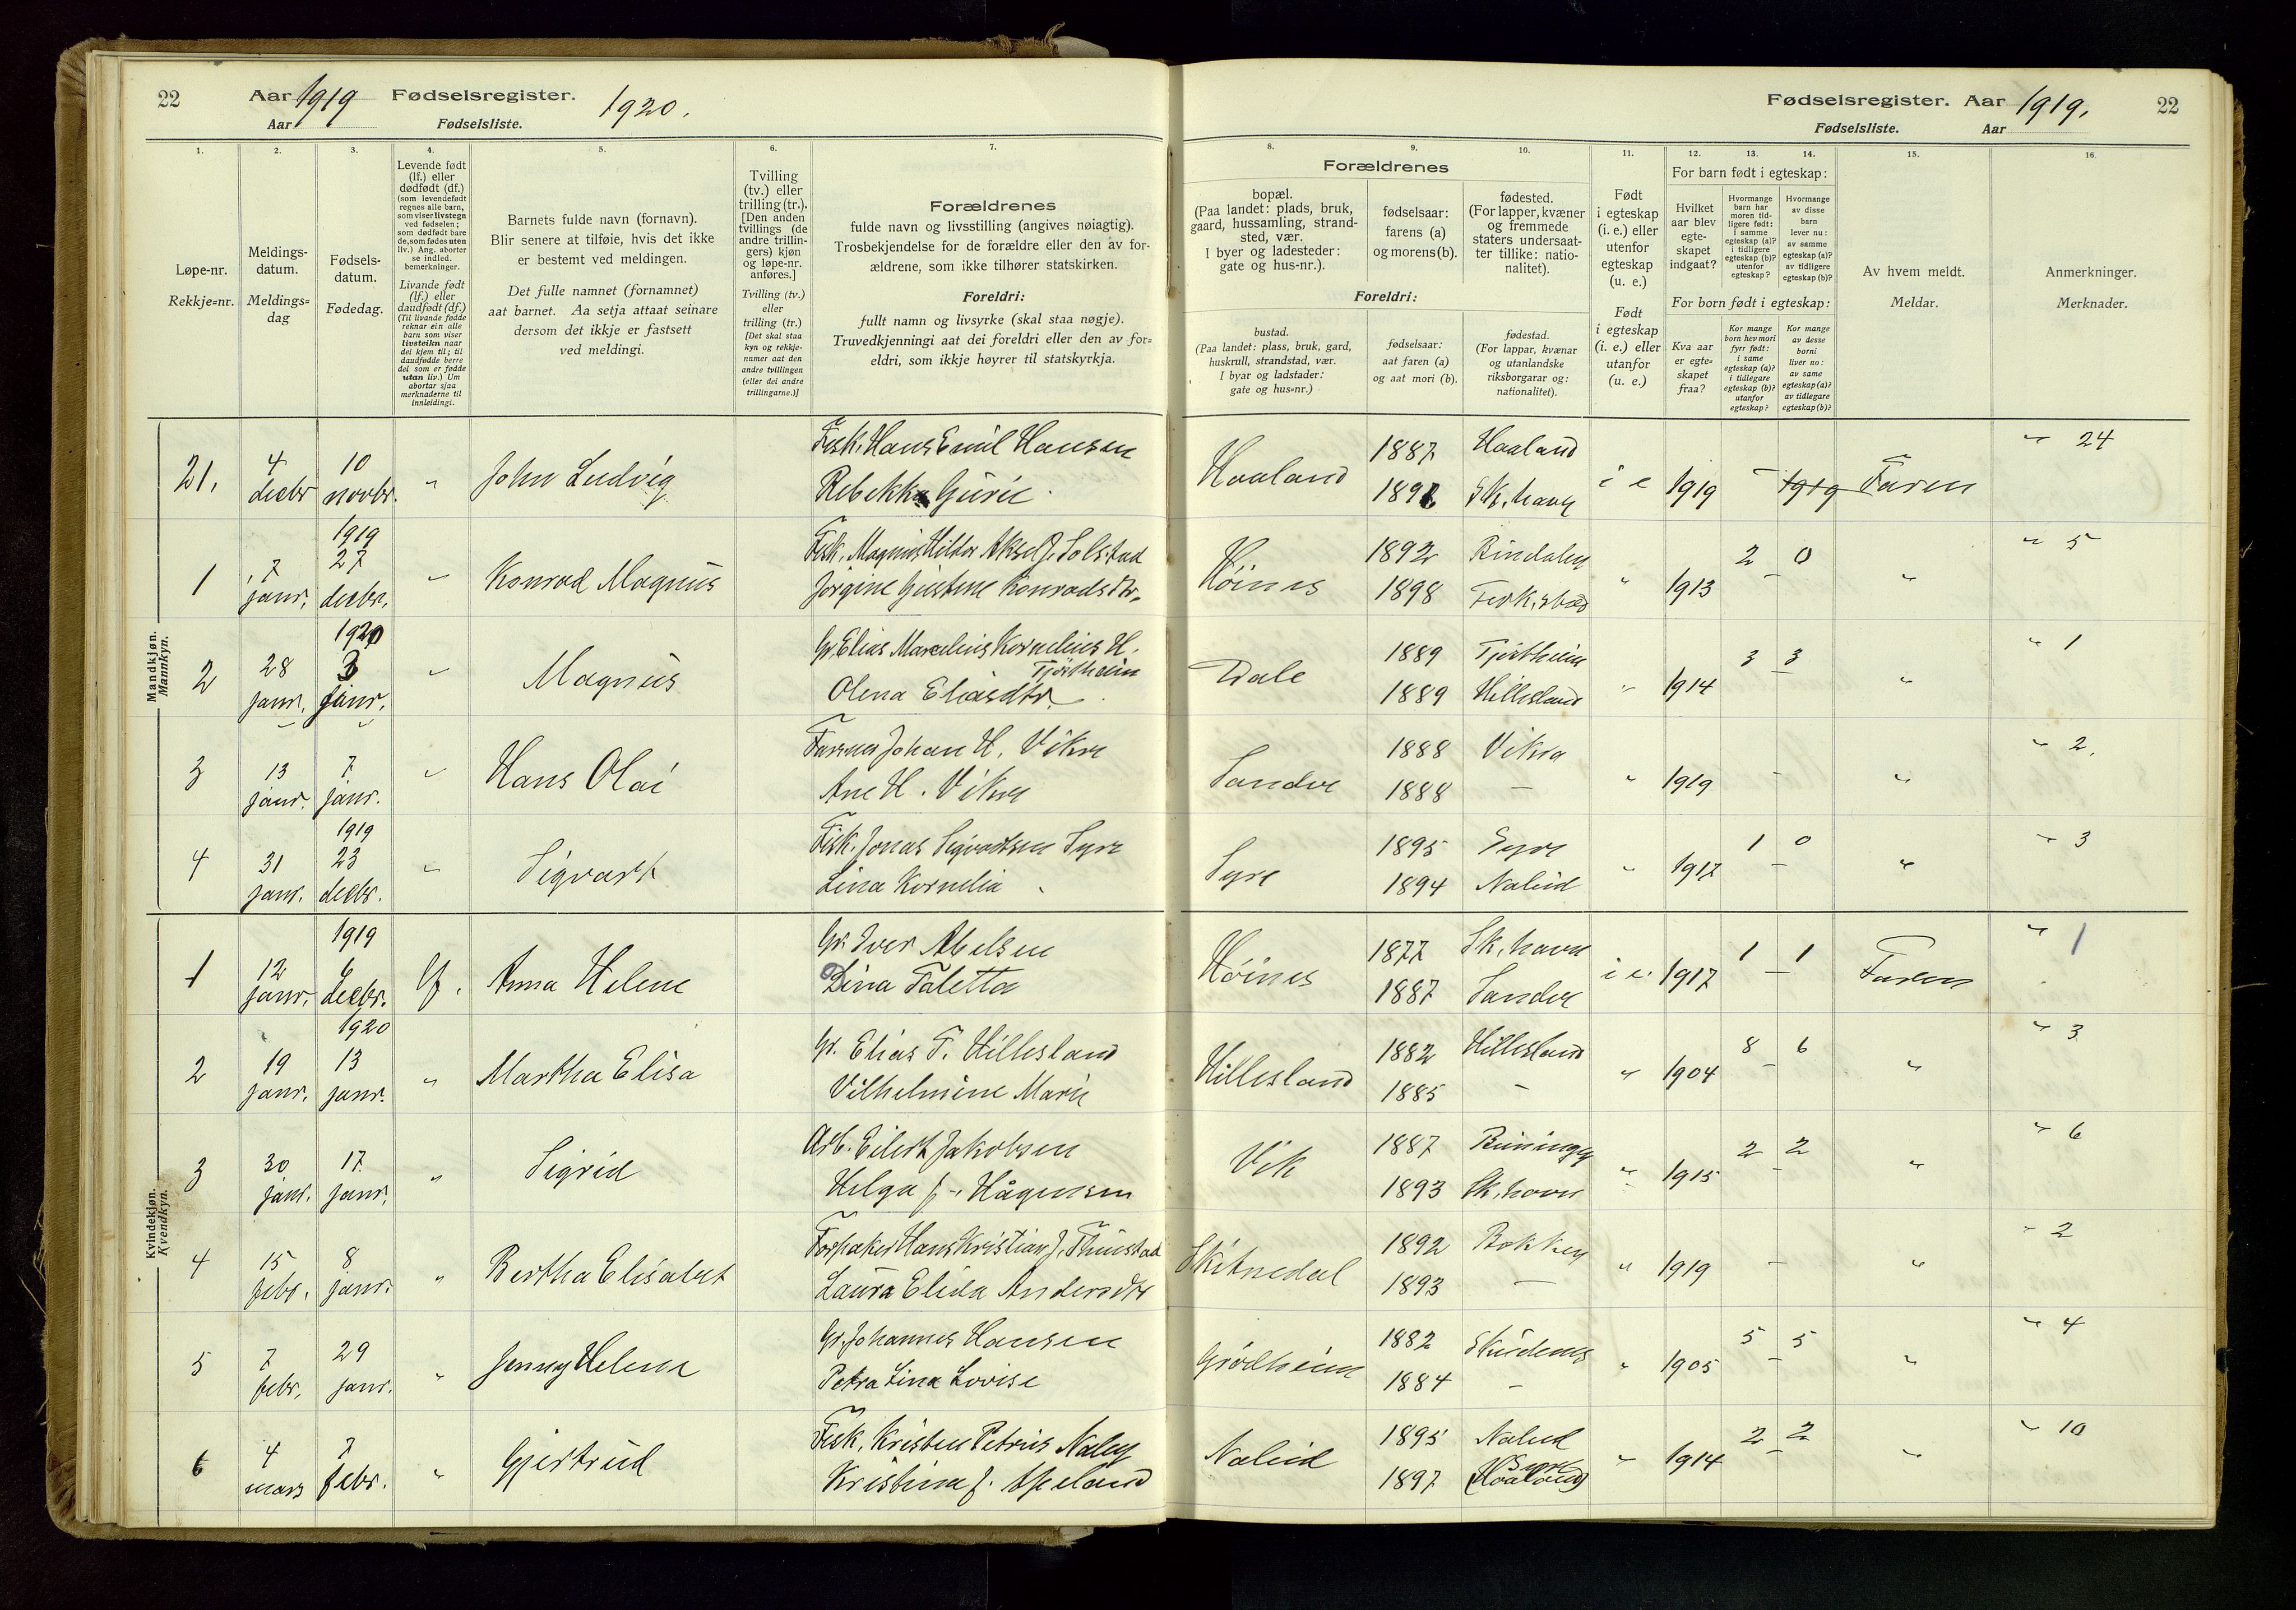 22 Aar 1919 Fødselsregister. 1920.
Aar Fødselsliste.
Fødselsregister. Aar 1919. 22
Fødselsliste. Aar
1. 2. 3. 4. 5. 6. 7. 8. 9. 10. 11. 12. 13. 14. 15. 16.
Løpe-nr.
Rekkje-nr.
Meldings-
datum.
Meldings-
dag
Fødsels-
datum.
Fødedag.
Levende født
(lf.) eller
dødfødt (df.)
(som levendefødt
regnes alle barn,
som viser livstegn
ved fødselen;
som dødfødt bare
de, som fødes uten
liv.) Ang. aborter
se indled.
bemerkninger.
Livande født
(lf.) eller
daudfødt (df.)
(Til livande fødde
reknar ein alle
barn som viser
livsteikn naar
dei kjem til; til
daudfødde berre
dei som er fødde
utan liv.) Um
abortar sjaa
merknaderne til
innleidingi.
Barnets fulde navn (fornavn).
Blir senere at tilføie, hvis det ikke
er bestemt ved meldingen.
Det fulle namnet (fornamnet)
aat barnet. Aa setja attaat seinare
dersom det ikkje er fastsett
ved meldingi.
Tvilling
(tv.) eller
trilling (tr.).
[Den anden
tvillings (de
andre trillin-
gers) kjøn
og løpe-nr.
anføres.]
Tvilling (tv.)
eller
trilling (tr.)
[Det skal staa
kyn og rekkje-
numer aat den
andre tvillingen
(eller dei andre
trillingarne.)]
Forældrenes
fulde navn og livsstilling (angives nøiagtig).
Trosbekjendelse for de forældre eller den av for-
ældrene, som ikke tilhører statskirken.
Foreldri:
fullt namn og livsyrke (skal staa nøgje).
Truvedkjenningi aat dei foreldri eller den av for-
eldri, som ikkje høyrer til statskyrkja.
Forældrenes
bopæl.
(Paa landet: plads, bruk,
gaard, hussamling, strand-
sted, vær.
I byer og ladesteder:
gate og hus-nr.).
fødselsaar:
farens (a)
og morens (b).
fødested.
(For lapper, kvæner
og fremmede
staters undersaat-
ter tillike: natio-
nalitet).
Foreldri:
bustad.
(Paa landet: plass, bruk, gard,
huskrull, strandstad, vær.
I byar og ladstader:
gate og hus-nr.)
fødselsaar:
aat faren (a)
og aat mori (b).
fødestad.
(For lappar, kvænar
og utanlandske
riksborgarar og:
nationalitet).
Født
i egteskap
(i. e.) eller
utenfor
egteskap
(u. e.)
Født
i egteskap
(i. e.) eller
utanfor
(u. e.)
For barn født i egteskap:
Hvilket
aar blev
egte-
skapet
indgaat?
Hvormange
barn har
moren tid-
ligere født:
i samme
egteskap (a)?
i tidligere
egteskap (b)?
utenfor
egteskap?
Hvormange
av disse
barn
lever nu:
av samme
egteskap (a)?
av tidligere
egteskap (b)?
For born født i egteskap:
Kva aar
er egte-
skapet
fraa?
Kor mange
born hev mori
fyrr født:
i same
egteskap (a)?
i tidlegare
egteskap (b)?
utanfor
egteskap?
Kor mange
av desse
borni
liver no:
av same
egteskap (a)?
av tidlegare
egteskap (b)?
Av hvem meldt.
Meldar.
Anmerkninger.
Merknader.
Mandkjøn.
Mannkyn.
21. 4 decbr 10 novbr. " John Ludvig Fisk. Hans Emil Hansen Haaland 1887 Haaland i e 1919 - 1919 Faren " 24
Rebekka Gurie 189 Sk.havn
1 7 janr. 1919 27 decbr. " Konrad Magnus Fisk. Magnus Aksel J. Solstad Høines 1892 Bindalen " 1913 2 - 0 " " 5
Jørgine Gustine Konradsdtr. 1898 Ferk.stad
2 28 janr. 1920 3 janr. " Magnus Gr. Elias Marcelius Kornelius H. Tjøstheim Dale 1889 Tjøstheim " 1914 3 - 3 " " 1
Olena Eliasdtr. 1889 Hillesland
3 13 janr. 7 janr. " Hans Olai Johan H. Vikre Sandve 1888 Vikra " 1919 - " " 2.
Ane H. Vikre 1888 —
4 31 janr. 1919 23 decbr. " Sigvart Fisk. Jonas Sigvartsen Syre Syre 1895 Syre " 1917 1 - 0 " " 3
Lina Kornelia 1894 Naleid
Kvindekjøn.
Kvendkyn.
1 12 janr. 1919 6 decbr. lf. Anna Helene Gr. Iver Abelsen Høines 1877 Sk.havn i e. 1917 1 - 1 Faren " 1
Dina Taletta 1887 Sandve
2 19 janr. 1920 13 janr. " Martha Elisa Gr. Elias T. Hillesland Hillesland 1882 Hillesland " 1904 8 - 6 " " 3
Vilhelmine Marie 1885 —
3 30 janr. 17 janr. " Sigrid Arb. Eilert Jakobsen Vik 1887 " 1915 2 - 2 " " 6
Helga f. Hågensen 1893 Sk.havn
4 15 febr. 8 janr. " Bertha Elisabet Forpakter Hans Kristian J. Thuestad Skitnedal 1892 Bokken " 1919 - " " 2
Laura Elida Andersdtr 1893 —
5 7 febr. 29 janr. " Jenny Helene Gr. Johannes Hansen Grødheim 1882 Skudenes " 1905 5 - 5 " " 4
Petra Lina Lovise 1884 —
6 4 mars 7 febr. " Gjertrud Fisk. Kristen Petrus Naley Naleid 1895 Naleid " 1914 2 - 2 " " 10
Kristina J. Apeland 1897 (Haaland)